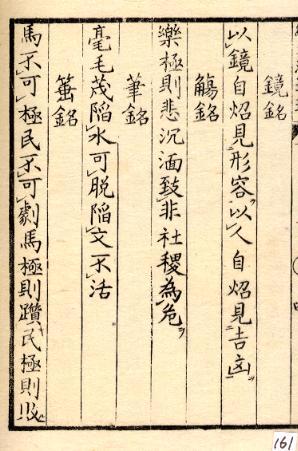 鏡銘
以鏡自炤見形容以人自炤見吉凶
觴銘
樂極則悲沉湎致非社稷為危
筆銘
毫毛茂陷水可脱陷文不活
箠銘
馬不可極民不可劇馬極則躓民極則敗
161